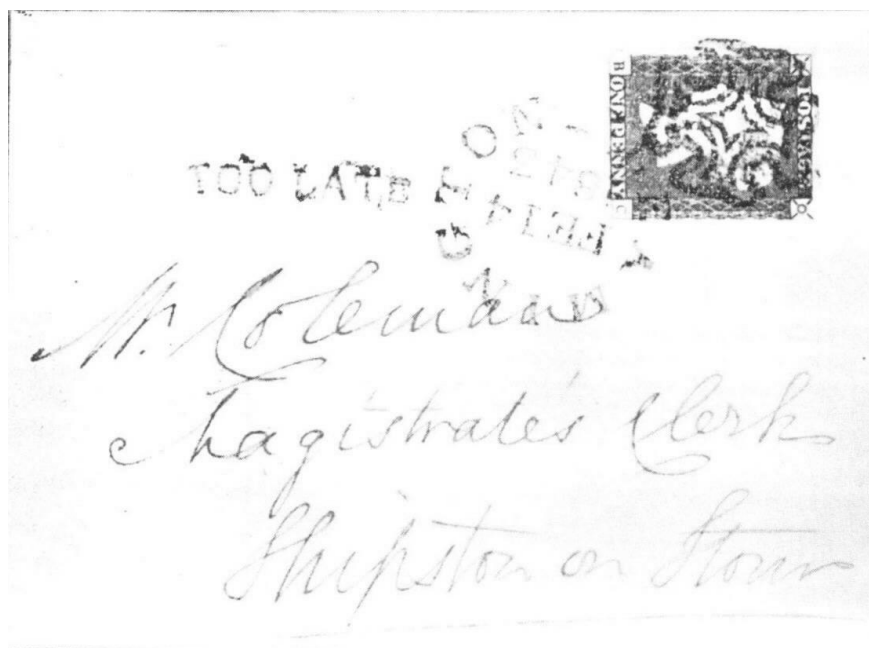 POSTAGE
ONE PENNY
TOO LATE
Mr. Coleman
Magistrate's Clerk
Shipston on Stour